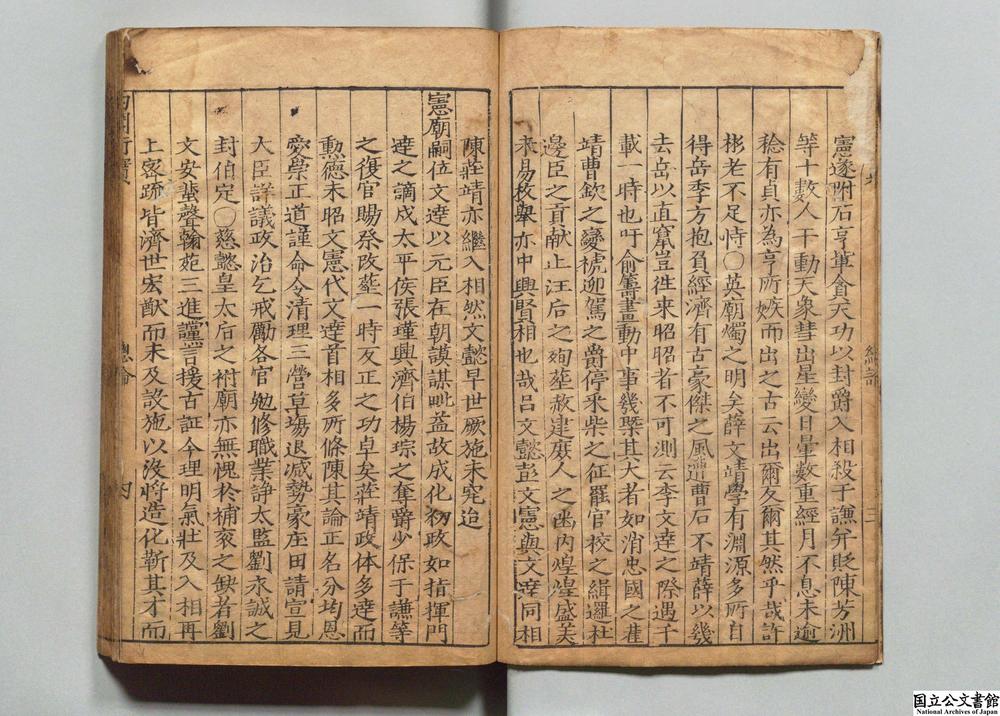 憲遂附石亨輩貪天功以封爵入相殺于謙弁貶陳芳洲
等十數人干動天象彗出星變日暈數重經月不息未逾
稔有貞亦為亨所嫉而出之古云出爾反爾其然乎哉許
彬老不足恃〇英廟燭之明矣薛文靖學有淵源多所自
得岳季方抱負經濟有古豪傑之風遭曹石不靖薛以幾
去岳以直竄豈徃來昭昭者不可測云李文達之際遇千
載一時也吁俞籌畫動中事幾槩其大者如消忠國之萑
靖曹欽之變褫迎駕之爵停釆柴之征罷官校之緝邏杜
邊臣之貢献止汪后之殉塟赦建庻人之凾內煌煌盛美
未易枚舉亦中興賢相也哉呂文懿彭文憲與文達同相
陳莊靖亦繼入相然文懿早世厥施未究迨
憲廟嗣位文達以元臣在朝謨謀毗益故成化初政如指揮門
達之謫戍太平侯張瑾興濟伯楊琮之奪爵少保于謙等
之復官賜祭改塟一時反正之功卓矣莊靖政体多達而
勲德未昭文憲代文達首相多所條陳其論正名分均恩
愛崇正道謹命令清理三營草場退减勢豪庄田請宣見
大臣詳議政治乞戒勵各官勉修職業諍太監劉永誠之
封伯定〇慈懿皇太后之祔廟亦無愧於補衮之缺者劉
文安蜚聲翰苑三進讜言援古証今理明氣壯及入相再
上密疏皆濟世宏猷而未及設施以沒將造化靳其才而
總論
國立公文書館
National Archives of Japan